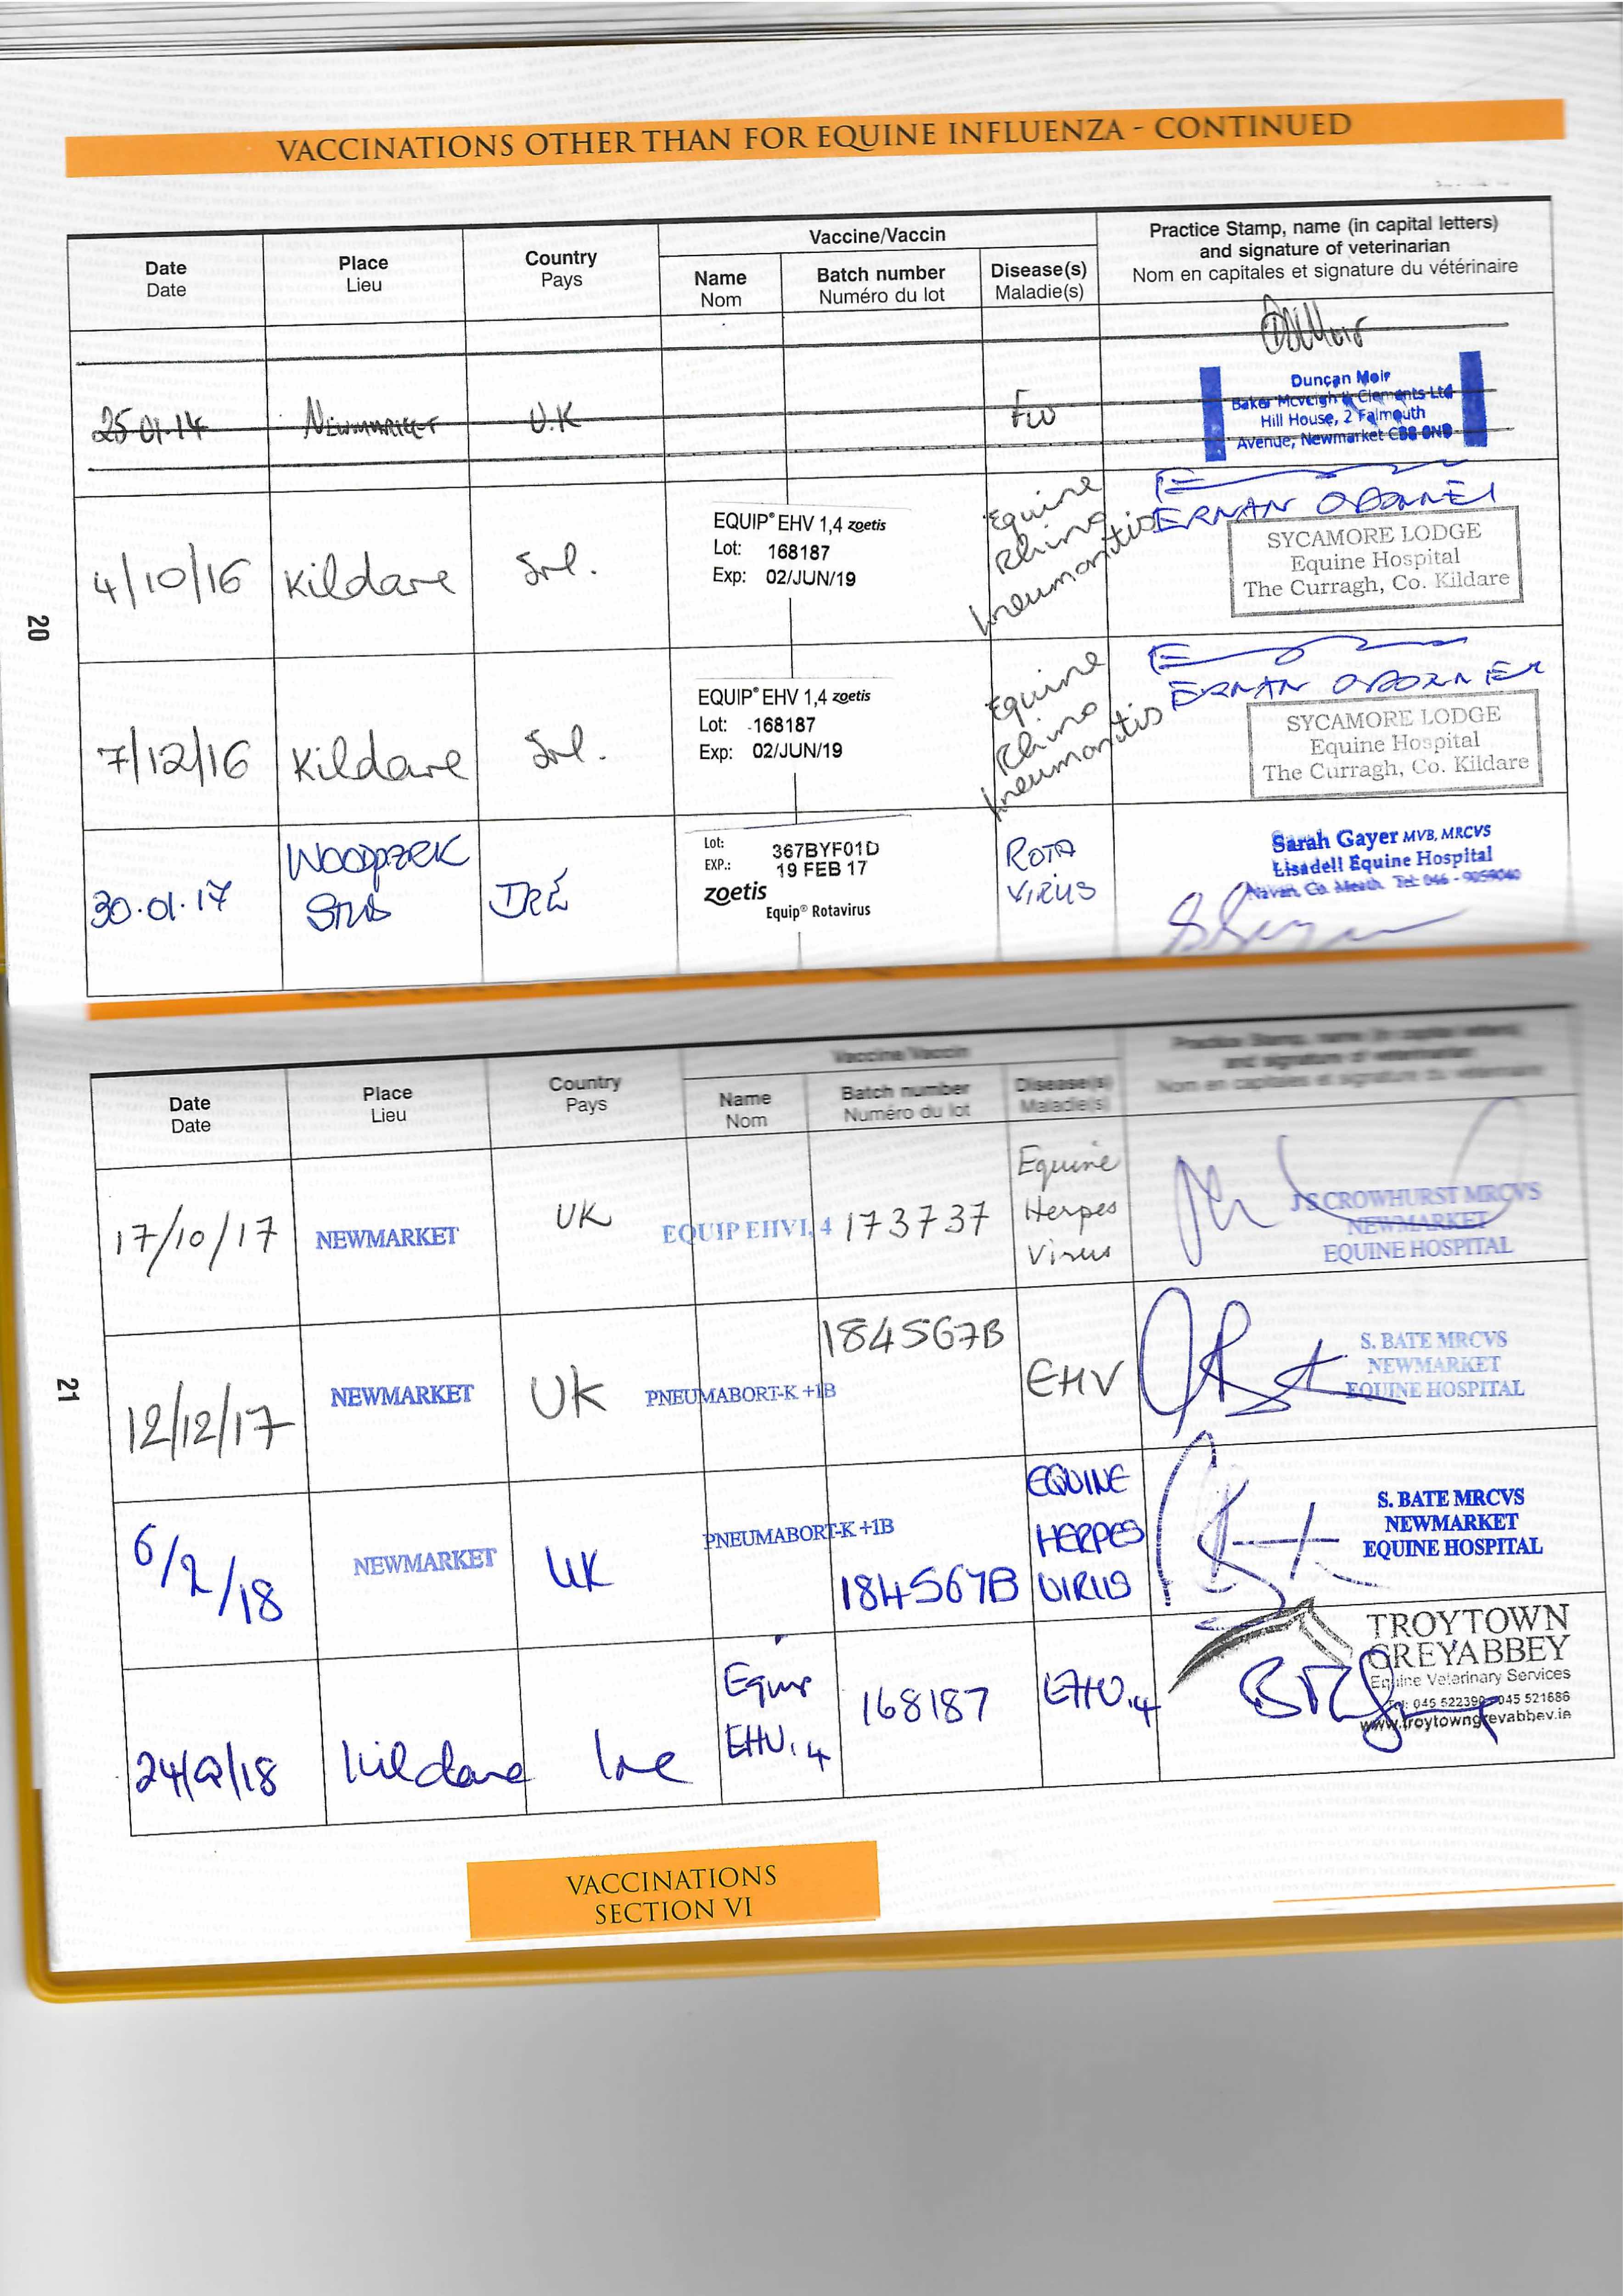 VACCINATIONS OTHER THAN FOR EQUINE INFLUENZA - CONTINUED
Date
Date
Place
Lieu
Country
Pays
Vaccine/Vaccin
Name
Nom
Batch number
Numéro du lot
Disease(s)
Maladie(s)
Practice Stamp, name (in capital letters)
and signature of veterinarian
Nom en capitales et signature du vétérinaire
25.01.14
NEWMARKET
U.K
Duncan Moir
Baker Mcveigh & Clements Ltd
Hill House, 2 Falmouth
Avenue, Newmarket CB8 0NB
4/10/16
Kildare
Irl.
EQUIP® EHV 1,4 zoetis
Lot: 168187
Exp: 02/JUN/19
Equine
Rhino
pneumonitis
SYCAMORE LODGE
Equine Hospital
The Curragh, Co. Kildare
7/12/16
Kildare
Irl.
EQUIP® EHV 1,4 zoetis
Lot: 168187
Exp: 02/JUN/19
Equine
Rhino
pneumonitis
SYCAMORE LODGE
Equine Hospital
The Curragh, Co. Kildare
30.01.17
WOODPARK
STUD
IRE
Lot: 367BYF01D
EXP.: 19 FEB 17
zoetis
Equip® Rotavirus
ROTA
VIRUS
Sarah Gayer MVB, MRCVS
Lisadell Equine Hospital
Navan, Co. Meath. Tel: 046 - 9059040
20
Date
Date
Place
Lieu
Country
Pays
Vaccine/Vaccin
Name
Nom
Batch number
Numéro du lot
Disease(s)
Maladie(s)
Practice Stamp, name (in capital letters)
and signature of veterinarian
Nom en capitales et signature du vétérinaire
17/10/17
NEWMARKET
UK
EQUIP EHV1,4
173737
Equine
Herpes
Virus
J S CROWHURST MRCVS
NEWMARKET
EQUINE HOSPITAL
12/12/17
NEWMARKET
UK
PNEUMABORT-K +1B
184567B
EHV
S. BATE MRCVS
NEWMARKET
EQUINE HOSPITAL
6/2/18
NEWMARKET
UK
PNEUMABORT-K +1B
184567B
EQUINE
HERPES
VIRUS
S. BATE MRCVS
NEWMARKET
EQUINE HOSPITAL
Kildare
Ire
Equip
EHV1,4
168187
EHV1,4
TROYTOWN
GREYABBEY
Equine Veterinary Services
045 521686
www.troytowngreyabbey.ie
21
VACCINATIONS
SECTION VI